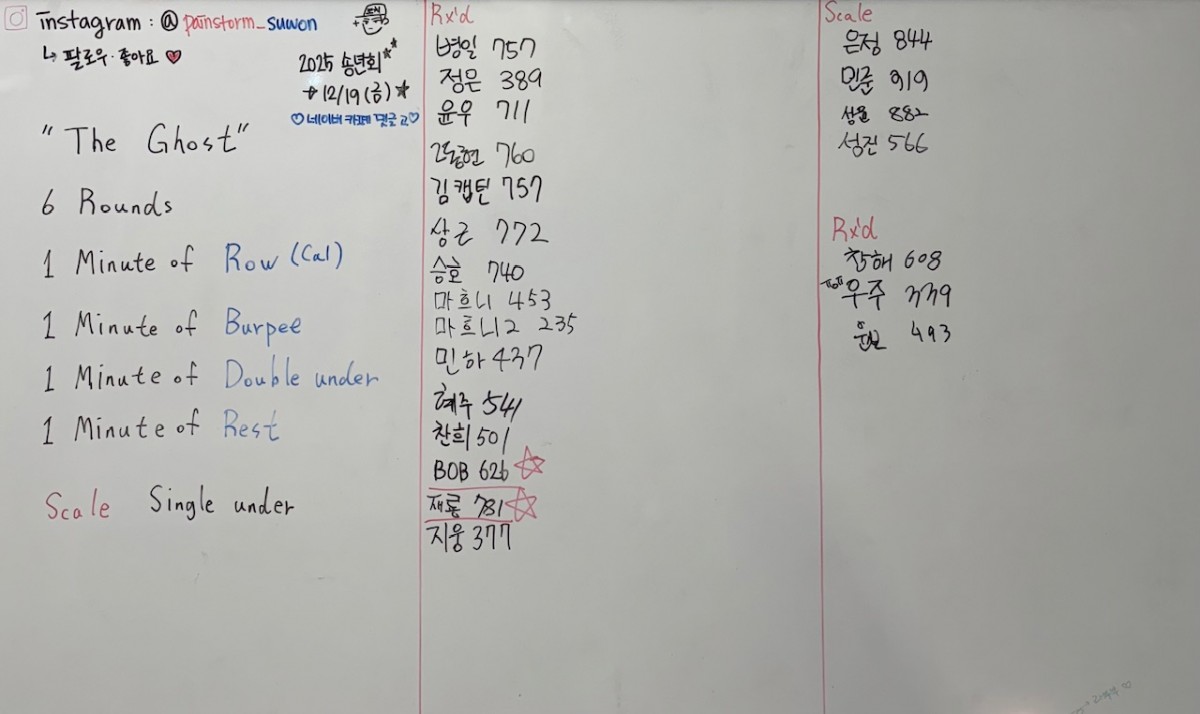 instagram : @painstorm_suwon
↳ 팔로우·좋아요 ♥
2025 송년회
→ 12/19 (금) ★
♡네이버 카페 댓글 고♡
"The Ghost"
6 Rounds
1 Minute of Row (Cal)
1 Minute of Burpee
1 Minute of Double under
1 Minute of Rest
Scale Single under
Rx'd
병일 757
정은 389
윤우 711
760
김캡틴 757
상근 772
승호 740
마흐니 453
마흐니2 235
민하 437
혜주 541
찬희 501
BOB 626 ☆
재룡 781 ☆
지웅 377
Scale
은정 844
민준 919
882
성진 566
Rx'd
창해 608
우주 339
493